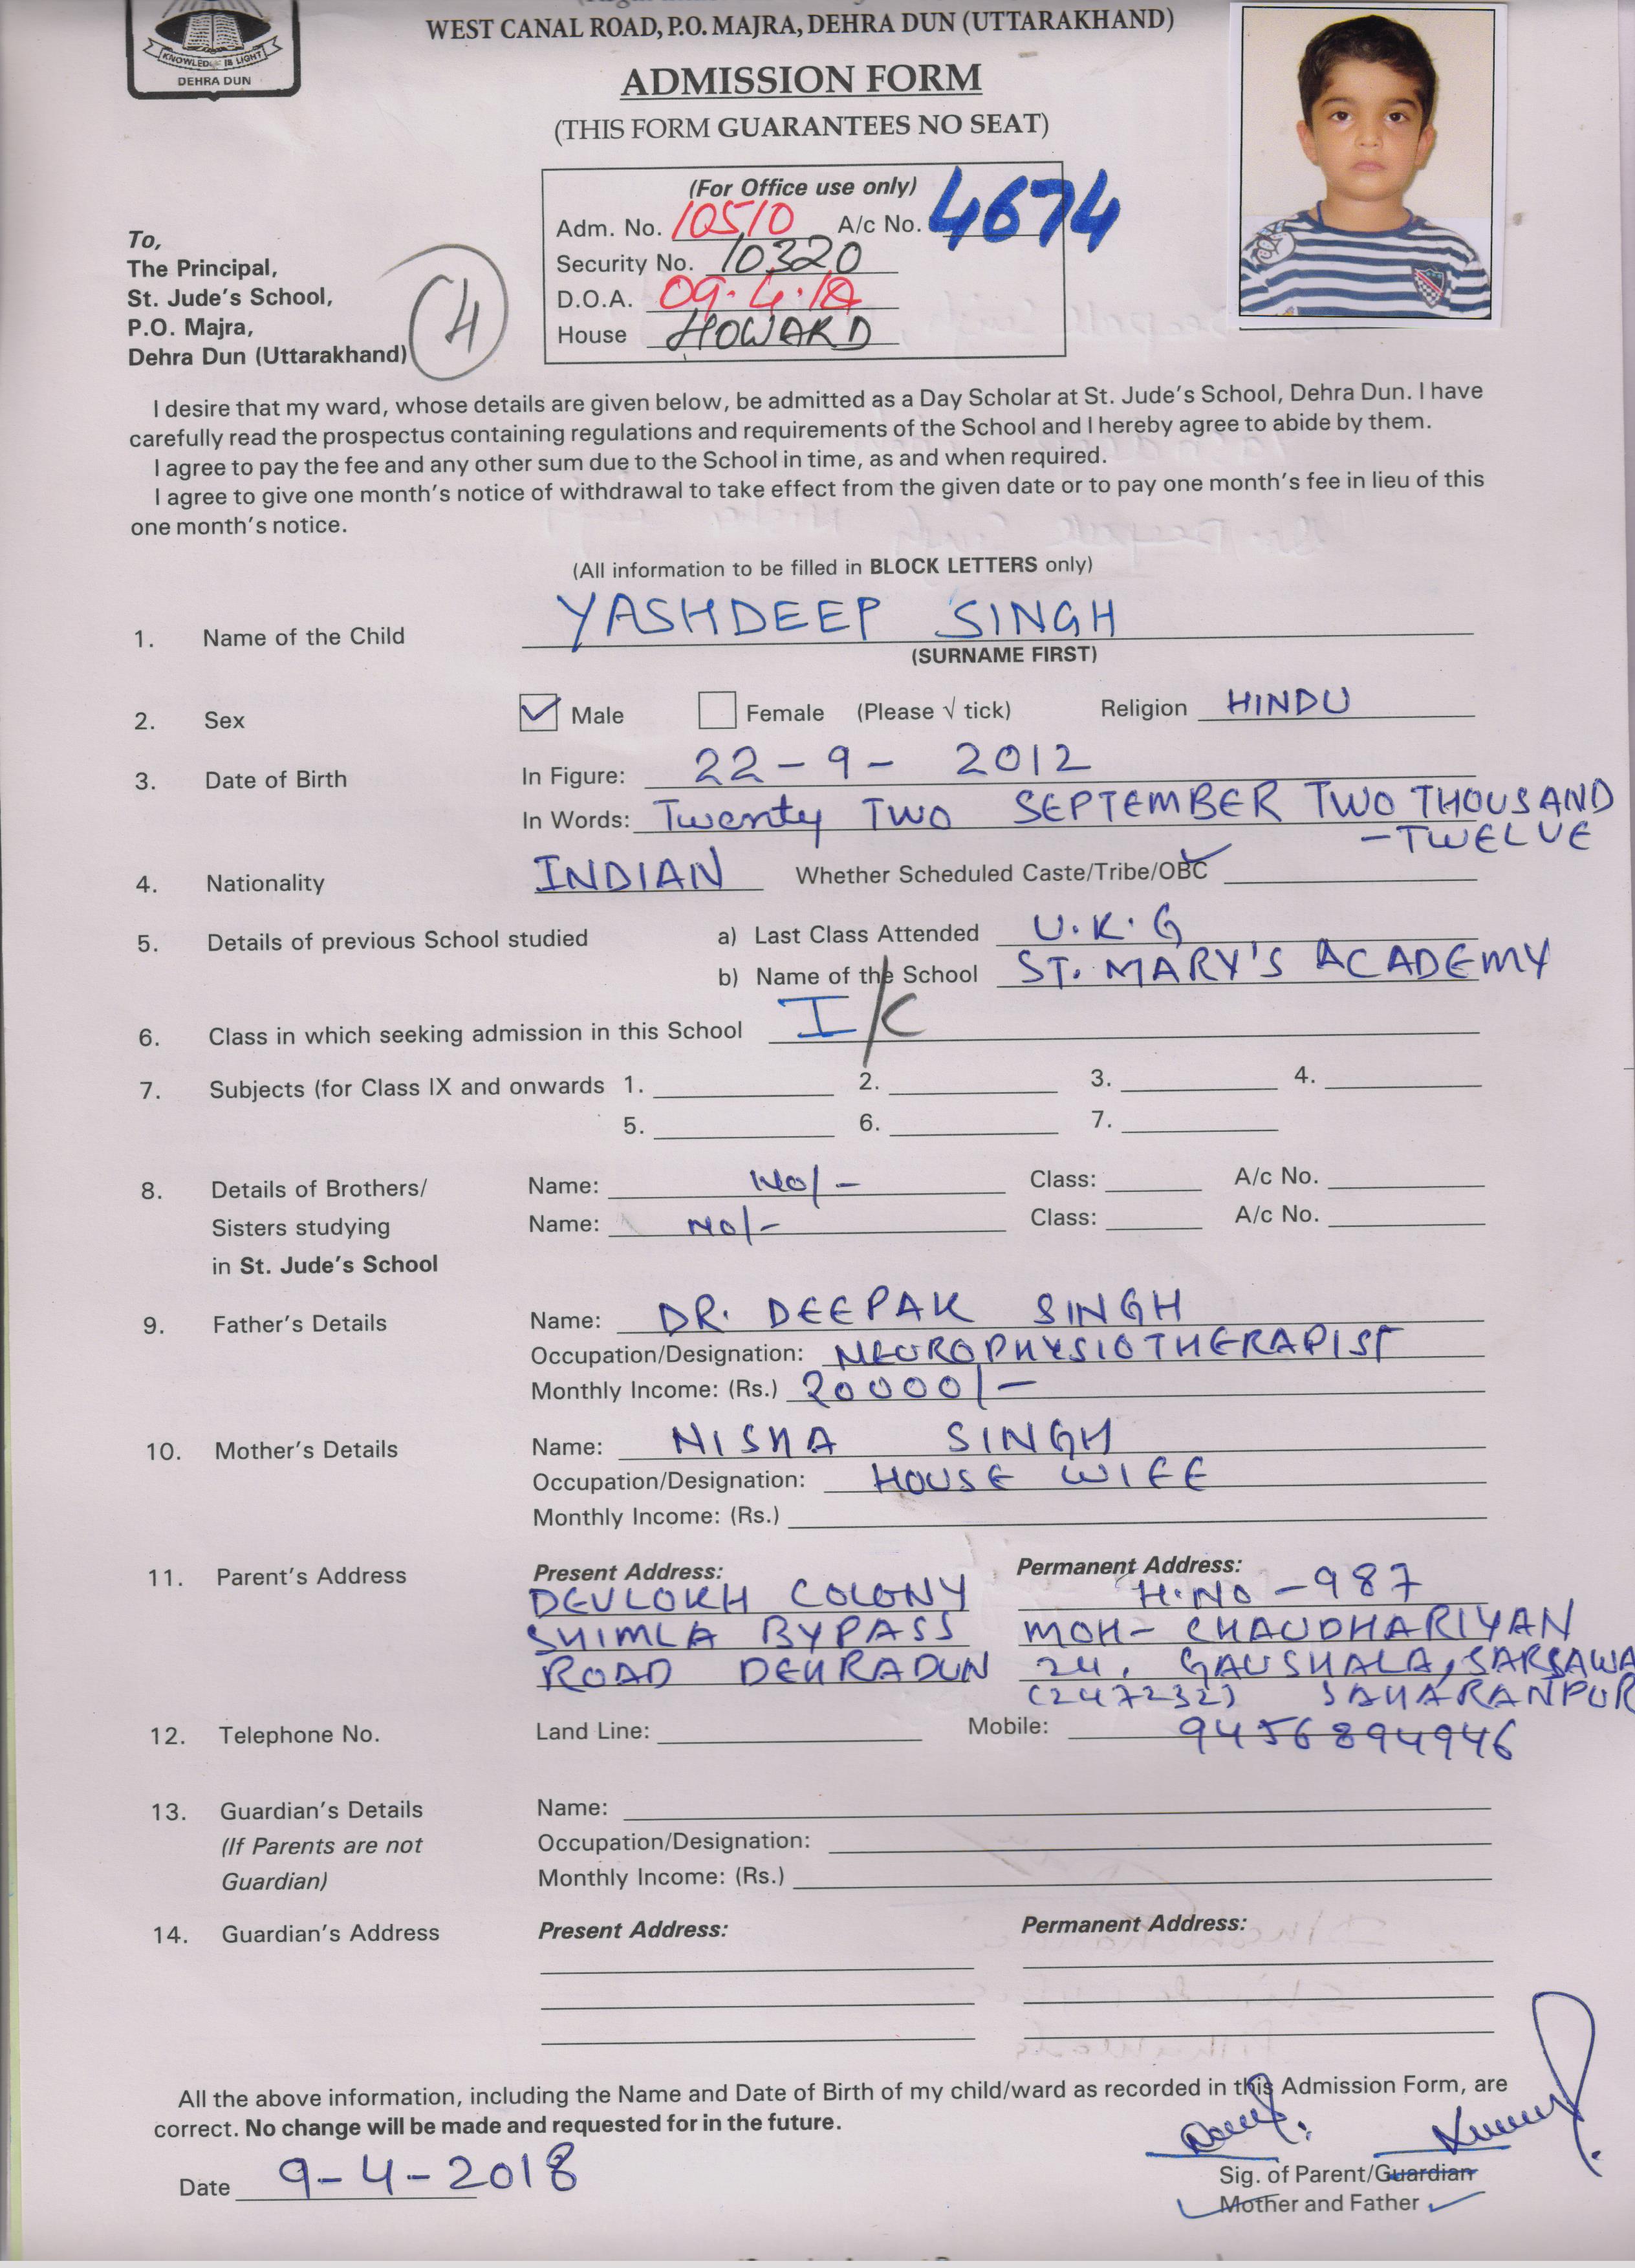 KNOWLEDGE IS LIGHT
DEHRA DUN
WEST CANAL ROAD, P.O. MAJRA, DEHRA DUN (UTTARAKHAND)
ADMISSION FORM
(THIS FORM GUARANTEES NO SEAT)
(For Office use only)
Adm. No. 10510 A/c No. 4674
Security No. 10320
D.O.A. 09.4.18
House HOWARD
To,
The Principal,
St. Jude's School,
P.O. Majra,
Dehra Dun (Uttarakhand)
4
I desire that my ward, whose details are given below, be admitted as a Day Scholar at St. Jude's School, Dehra Dun. I have
carefully read the prospectus containing regulations and requirements of the School and I hereby agree to abide by them.
I agree to pay the fee and any other sum due to the School in time, as and when required.
I agree to give one month's notice of withdrawal to take effect from the given date or to pay one month's fee in lieu of this
one month's notice.
(All information to be filled in BLOCK LETTERS only)
1. Name of the Child YASHDEEP SINGH
(SURNAME FIRST)
2. Sex Male Female (Please √ tick) Religion HINDU
3. Date of Birth In Figure: 22-9- 2012
In Words: Twenty TWO SEPTEMBER TWO THOUSAND
-TWELVE
4. Nationality INDIAN Whether Scheduled Caste/Tribe/OBC
5. Details of previous School studied a) Last Class Attended U.K.G
b) Name of the School ST. MARY'S ACADEMY
6. Class in which seeking admission in this School I/C
7. Subjects (for Class IX and onwards 1. 2. 3. 4.
5. 6. 7.
8. Details of Brothers/ Name: No/- Class: A/c No.
Sisters studying Name: No/- Class: A/c No.
in St. Jude's School
9. Father's Details Name: DR. DEEPAK SINGH
Occupation/Designation: NEUROPHYSIOTHERAPIST
Monthly Income: (Rs.) 20000/-
10. Mother's Details Name: NISHA SINGH
Occupation/Designation: HOUSE WIFE
Monthly Income: (Rs.)
11. Parent's Address Present Address: Permanent Address:
DEVLOKH COLONY H.NO -987
SHIMLA BYPASS MOH- CHAUDHARIYAN
ROAD DEHRADUN 24, GAUSHALA, SARSAWA
(247232) SAHARANPUR
12. Telephone No. Land Line: Mobile: 9456894946
13. Guardian's Details Name:
(If Parents are not Occupation/Designation:
Guardian) Monthly Income: (Rs.)
14. Guardian's Address Present Address: Permanent Address:
All the above information, including the Name and Date of Birth of my child/ward as recorded in this Admission Form, are
correct. No change will be made and requested for in the future.
Date 9-4-2018
Sig. of Parent/Guardian
Mother and Father